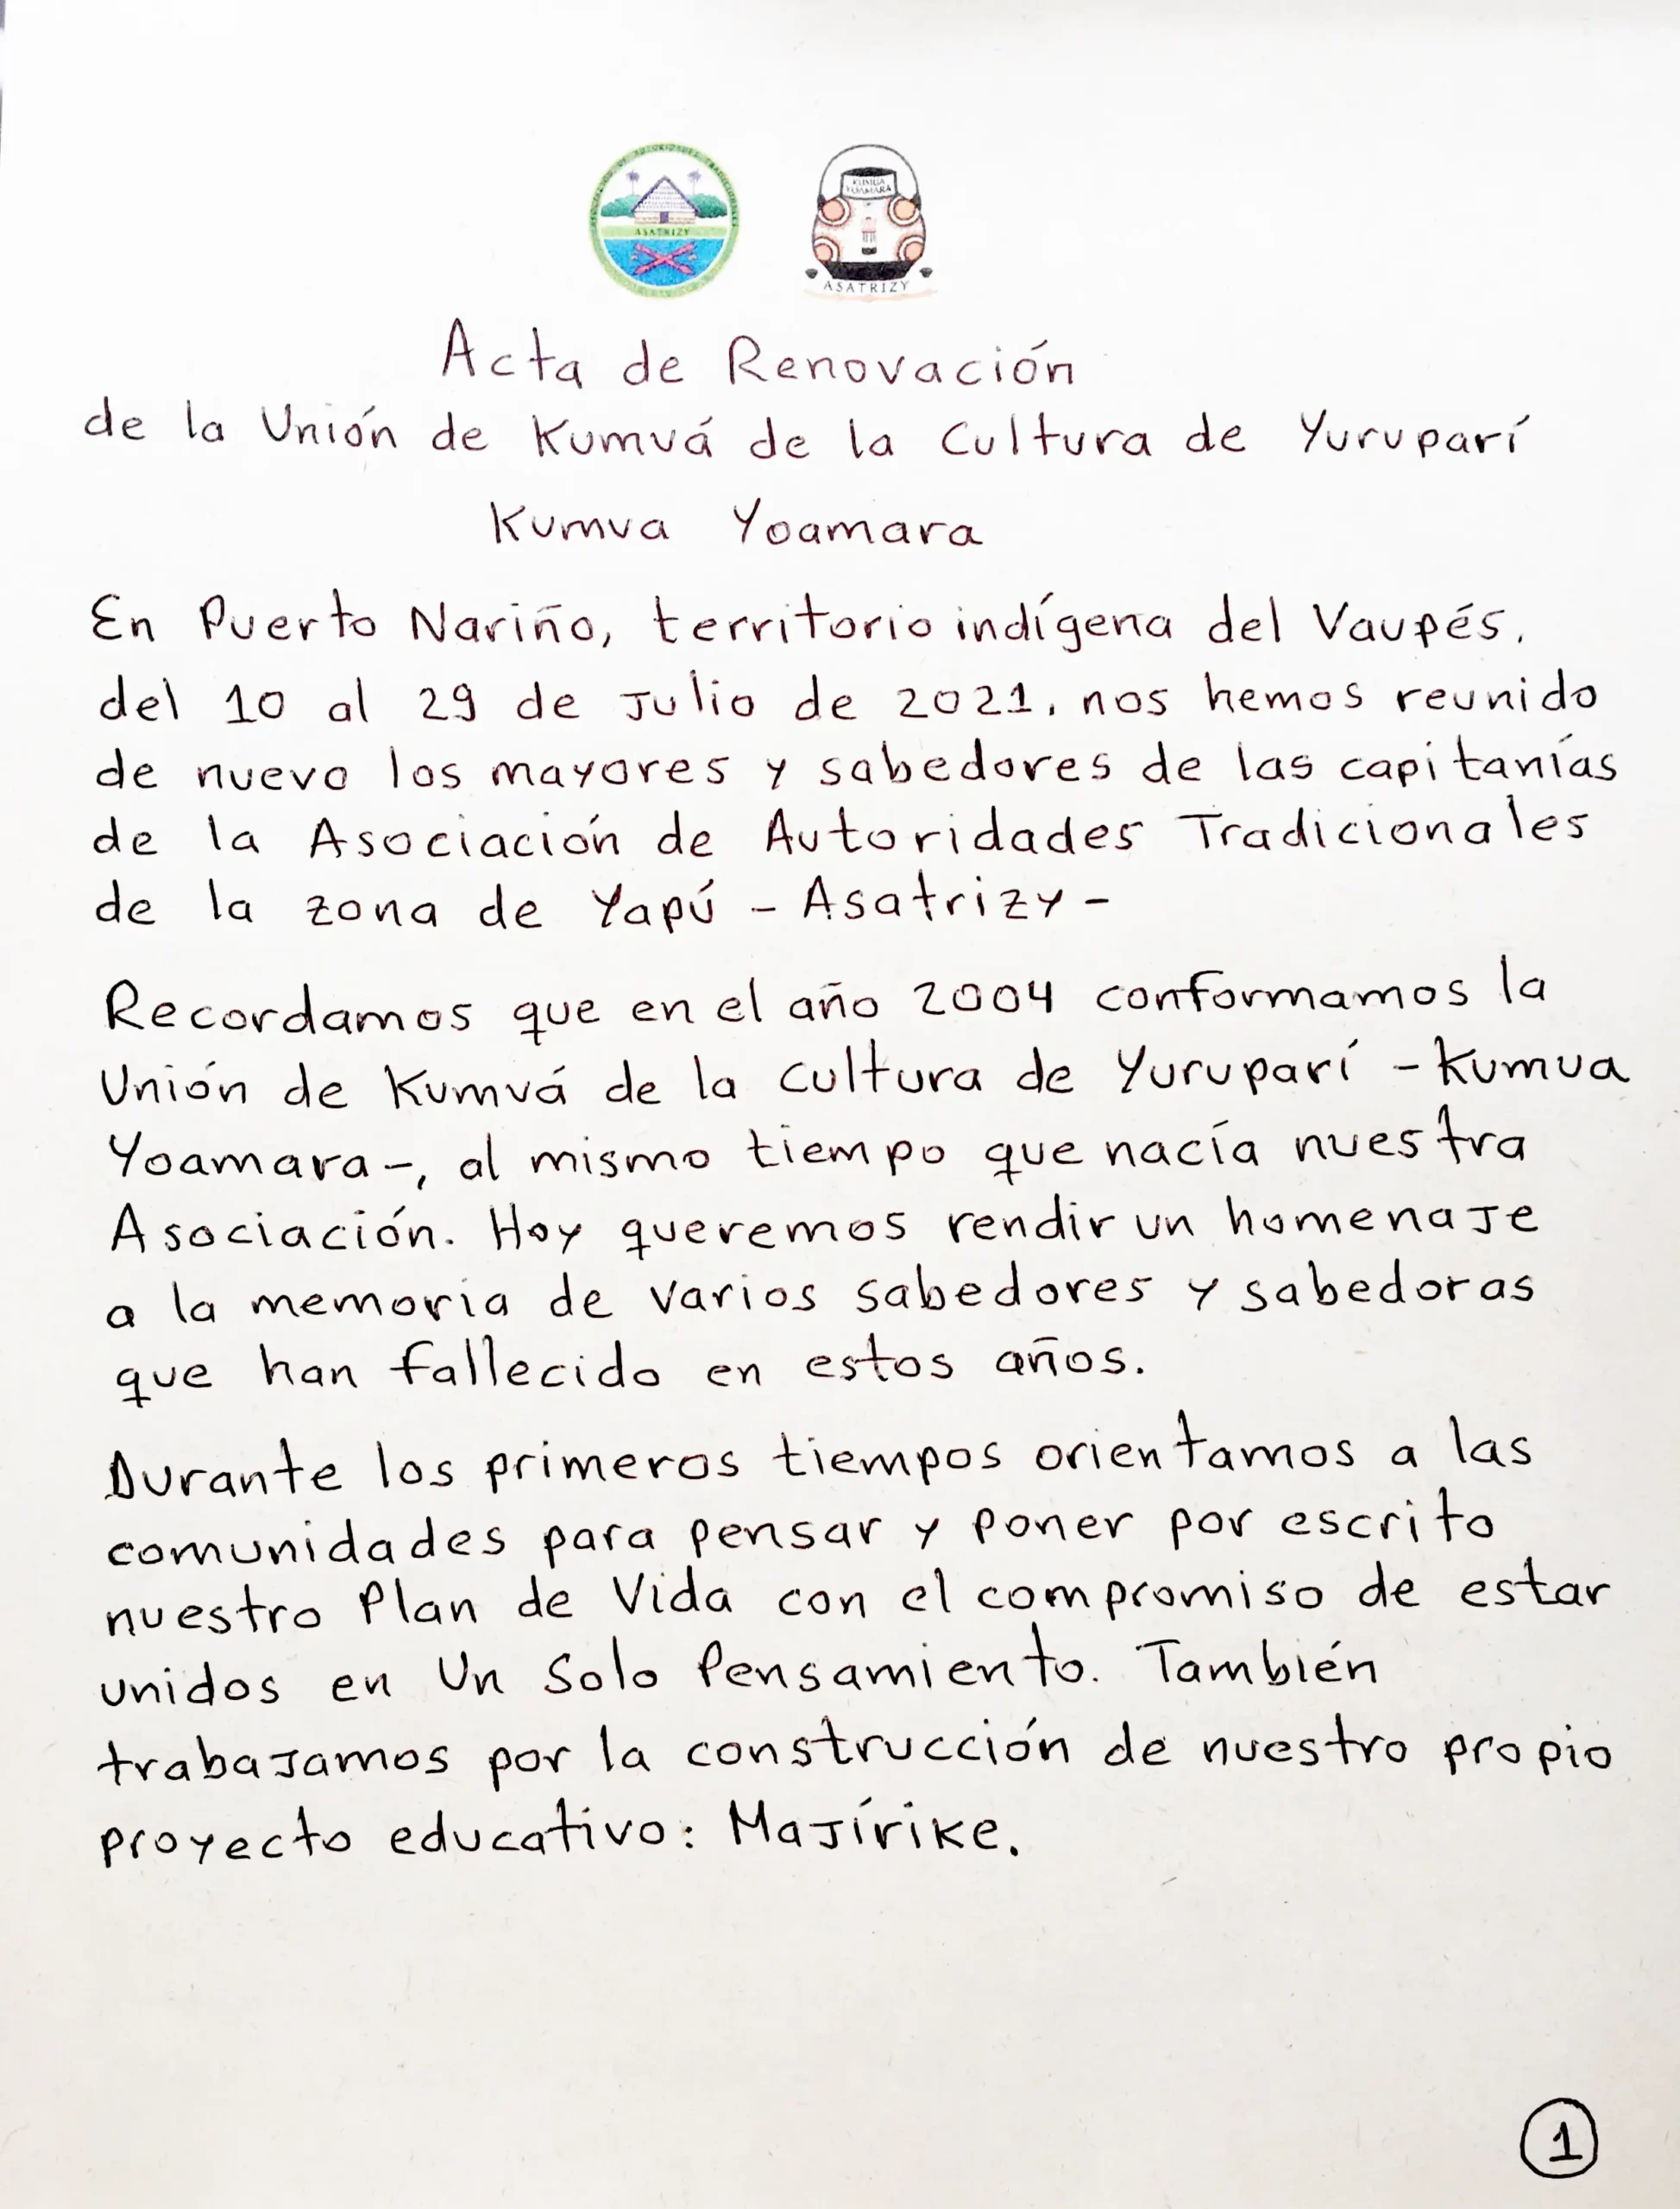 ASOCIACIÓN DE AUTORIDADES TRADICIONALES
ASATRIZY
KUMUA
YOAMARA
ASATRIZY
Acta de Renovación
de la Unión de Kumuá de la Cultura de Yuruparí
Kumua Yoamara
En Puerto Nariño, territorio indígena del Vaupés,
del 10 al 29 de Julio de 2021, nos hemos reunido
de nuevo los mayores y sabedores de las capitanías
de la Asociación de Autoridades Tradicionales
de la zona de Yapú - Asatrizy -
Recordamos que en el año 2004 conformamos la
Unión de Kumuá de la cultura de Yuruparí - Kumua
Yoamara -, al mismo tiempo que nacía nuestra
Asociación. Hoy queremos rendir un homenaje
a la memoria de varios sabedores y sabedoras
que han fallecido en estos años.
Durante los primeros tiempos orientamos a las
comunidades para pensar y poner por escrito
nuestro Plan de Vida con el compromiso de estar
unidos en Un Solo Pensamiento. También
trabajamos por la construcción de nuestro propio
proyecto educativo: Majírike.
1